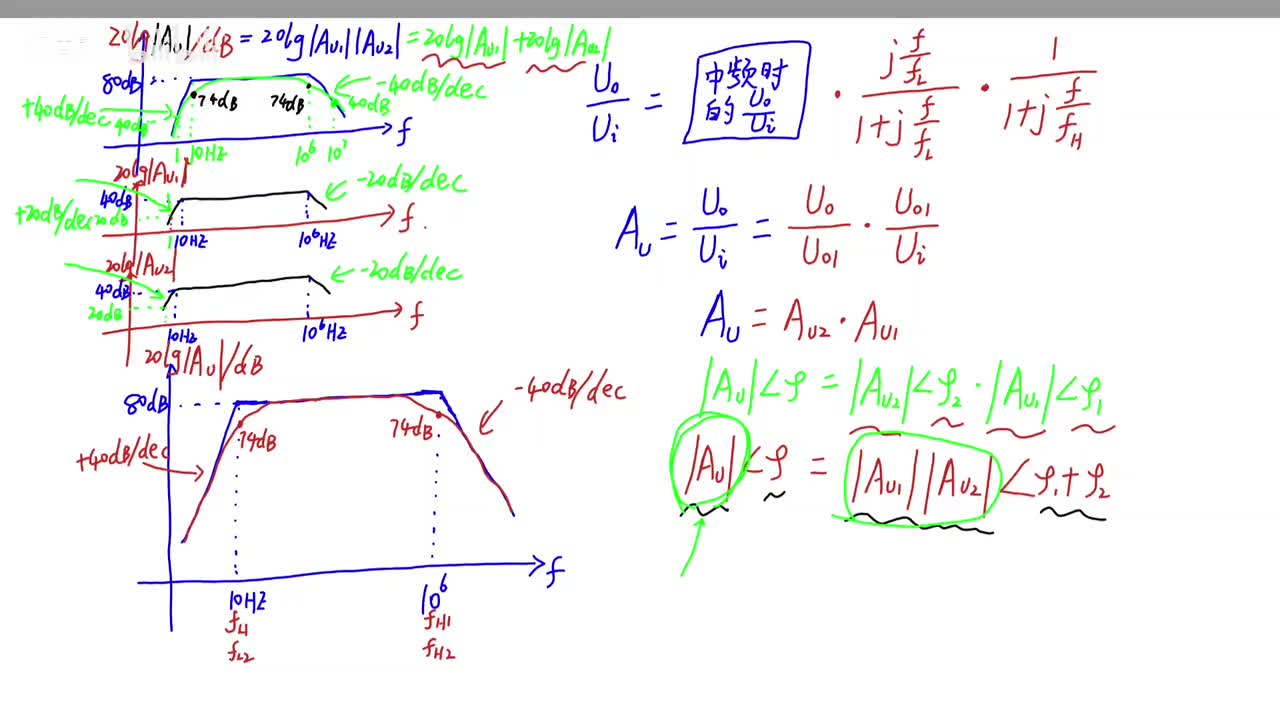 20lg|Au|/dB = 20lg|Au1||Au2| = 20lg|Au1| + 20lg|Au2|
80dB
74dB
74dB
-40dB/dec
+40dB/dec
40dB
40dB
f
1 10HZ
10⁶
20lg|Au1|
40dB
-20dB/dec
+20dB/dec
20dB
f
1 10HZ
10⁶HZ
20lg|Au2|
40dB
-20dB/dec
20dB
f
10HZ
10⁶HZ
20lg|Au|/dB
80dB
74dB
74dB
-40dB/dec
+40dB/dec
f
10HZ
10⁶
fL1
fH1
fL2
fH2
Uo/Ui = 中频时的 Uo/Ui · (j f/fL)/(1+j f/fL) · 1/(1+j f/fH)
Au = Uo/Ui = Uo/Uo1 · Uo1/Ui
Au = Au2 · Au1
|Au|∠φ = |Au2|∠φ2 · |Au1|∠φ1
|Au|∠φ = |Au1||Au2|∠φ1+φ2